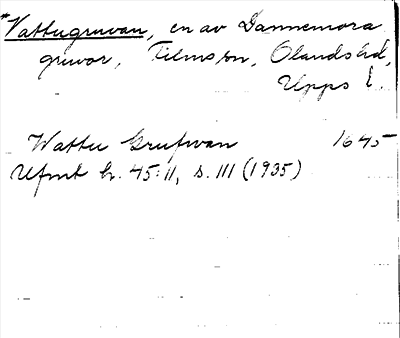 *Vattugruvan, en av Dannemora
gruvor, Films sn, Olands hd,
Upps l.
Wattu Grufwan 1645
Ufmt h. 45:11, s. 111 (1935)